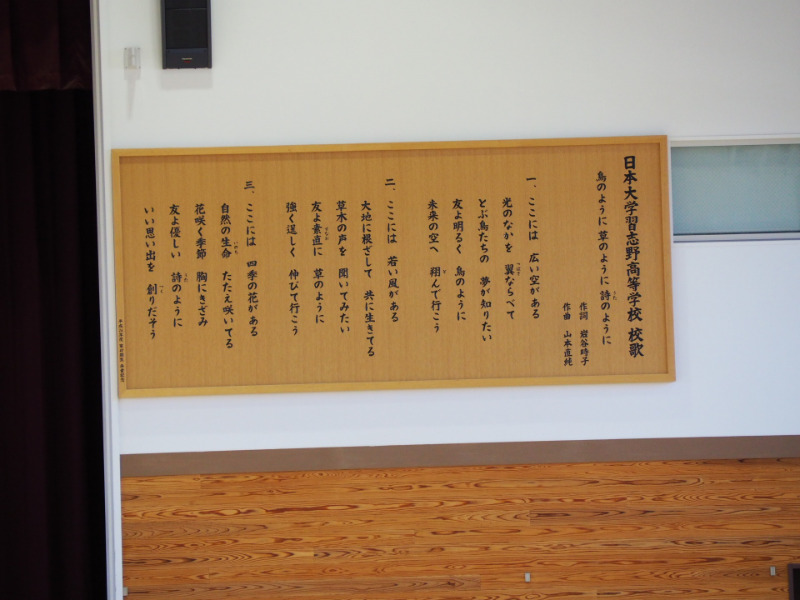 日本大学習志野高等学校 校歌
鳥のように 草のように 詩のように
作詞 岩谷時子
作曲 山本直純
一、ここには 広い空がある
光のなかを 翼ならべて
とぶ鳥たちの 夢が知りたい
友よ明るく 鳥のように
未来の空へ 翔んで行こう
二、ここには 若い風がある
大地に根ざして 共に生きてる
草木の声を 聞いてみたい
友よ素直に 草のように
強く逞しく 伸びて行こう
三、ここには 四季の花がある
自然の生命 たたえ咲いてる
花咲く季節 胸にきざみ
友よ優しい 詩のように
いい思い出を 創りだそう